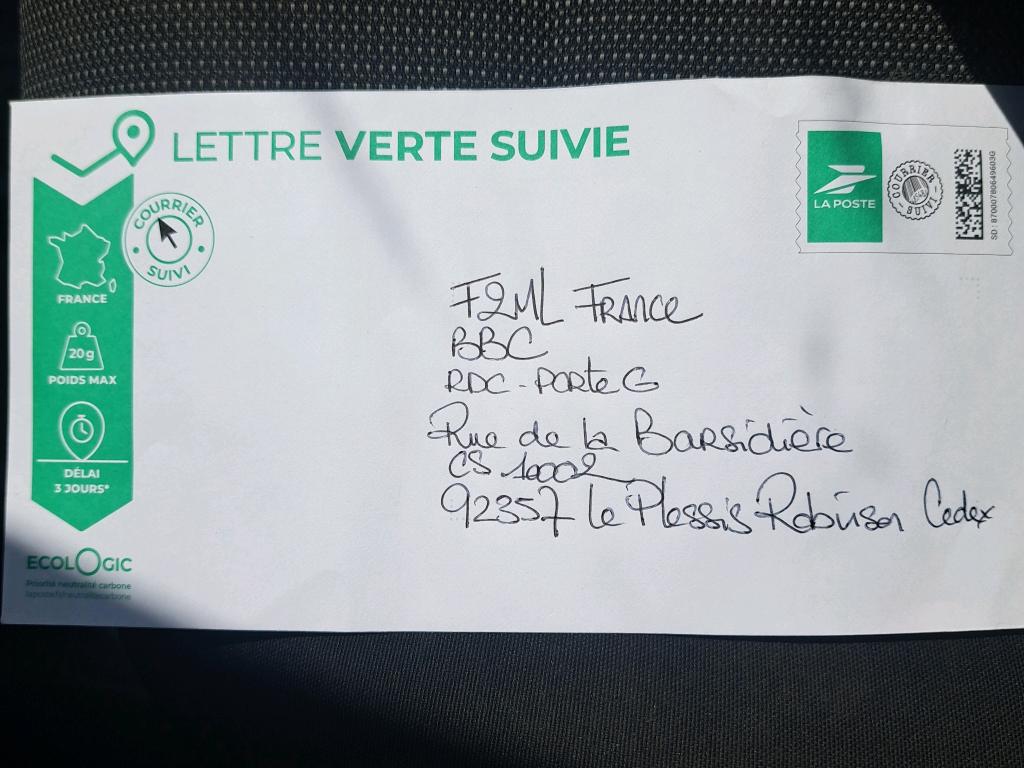 LETTRE VERTE SUIVIE
COURRIER
SUIVI
FRANCE
20g
POIDS MAX
DÉLAI
3 JOURS*
ECOLOGIC
Priorité neutralité carbone
laposte.fr/neutralitecarbone
LA POSTE
COURRIER
SUIVI
SD : 87000780649603G
F2ML France
BBC
RDC - Porte G
Rue de la Barsidière
CS 10002
92357 Le Plessis Robinson Cedex